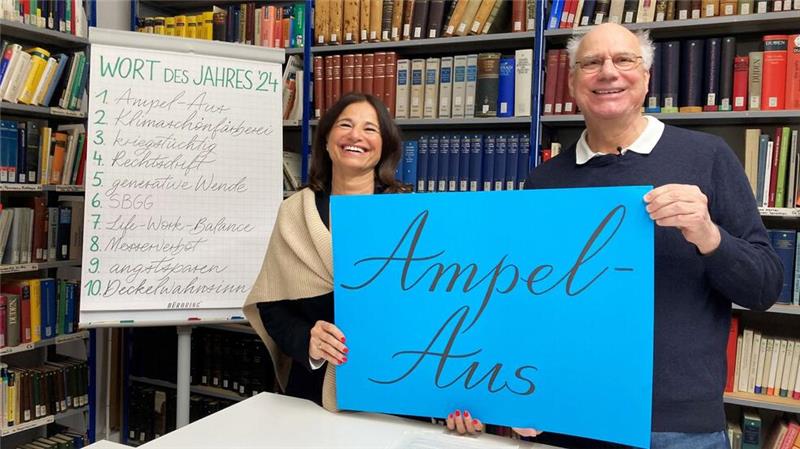 WORT DES JAHRES '24
1 Ampel-Aus
2 Klimaschönfärberei
3 kriegstüchtig
4 Rechtsdrift
5 generative Wende
6 SBGG
7 Life-Work-Balance
8 Messerverbot
9 angstsparen
10 Deckelwahnsinn
Ampel-
Aus